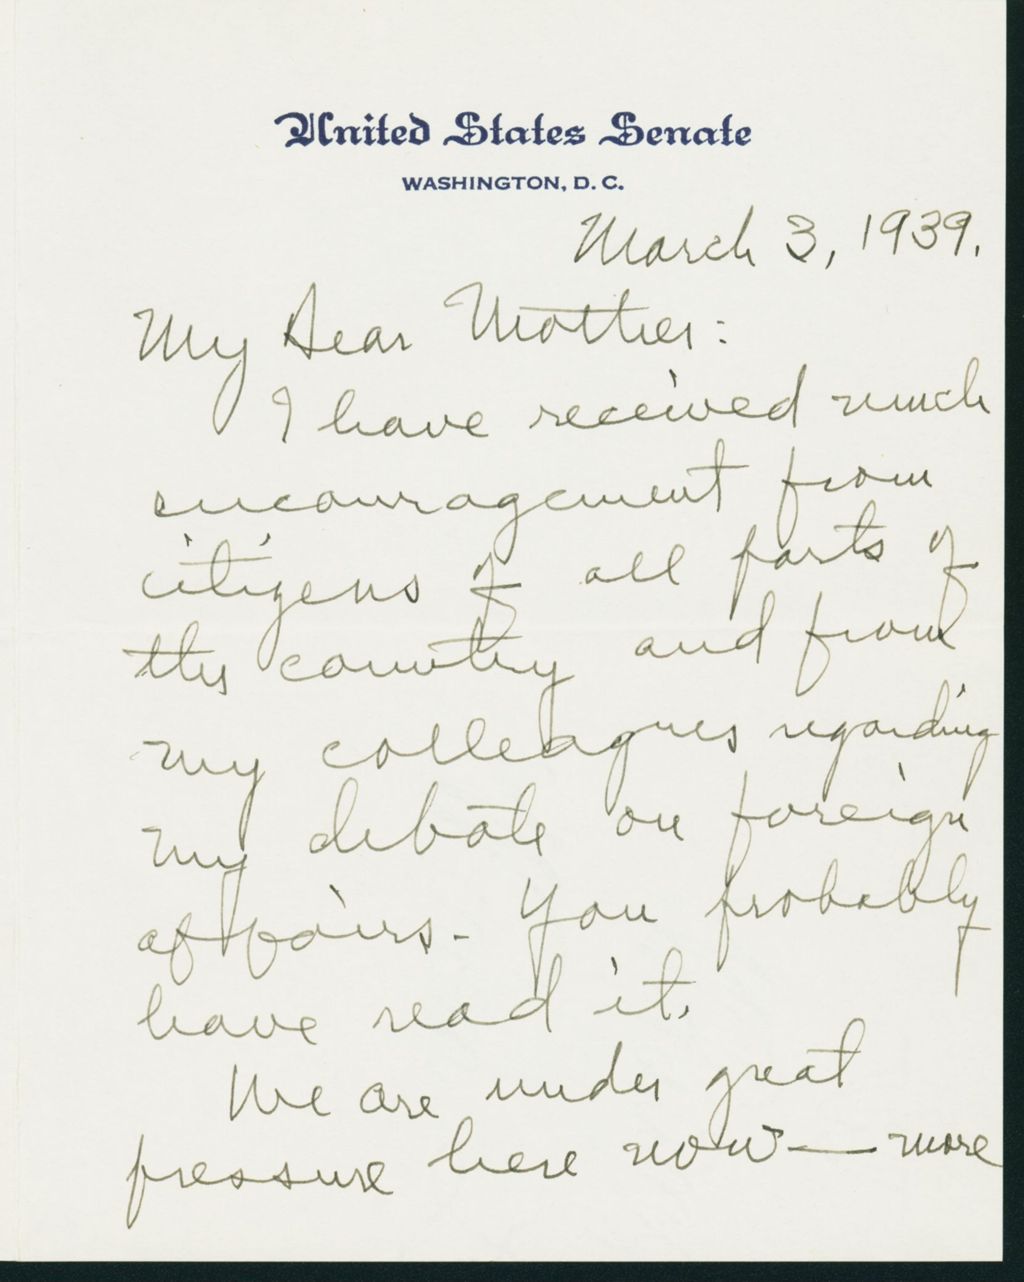 United States Senate
WASHINGTON, D. C.
March 3, 1939.
My Dear Mother:
I have received much
encouragement from
citizens of all parts of
the country and from
my colleagues regarding
my debate on foreign
affairs - You probably
have read it.
We are under great
pressure here now — more